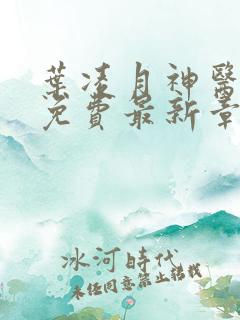 葉凌月神醫
免費最新章
冰河時代
未經同意禁止轉載